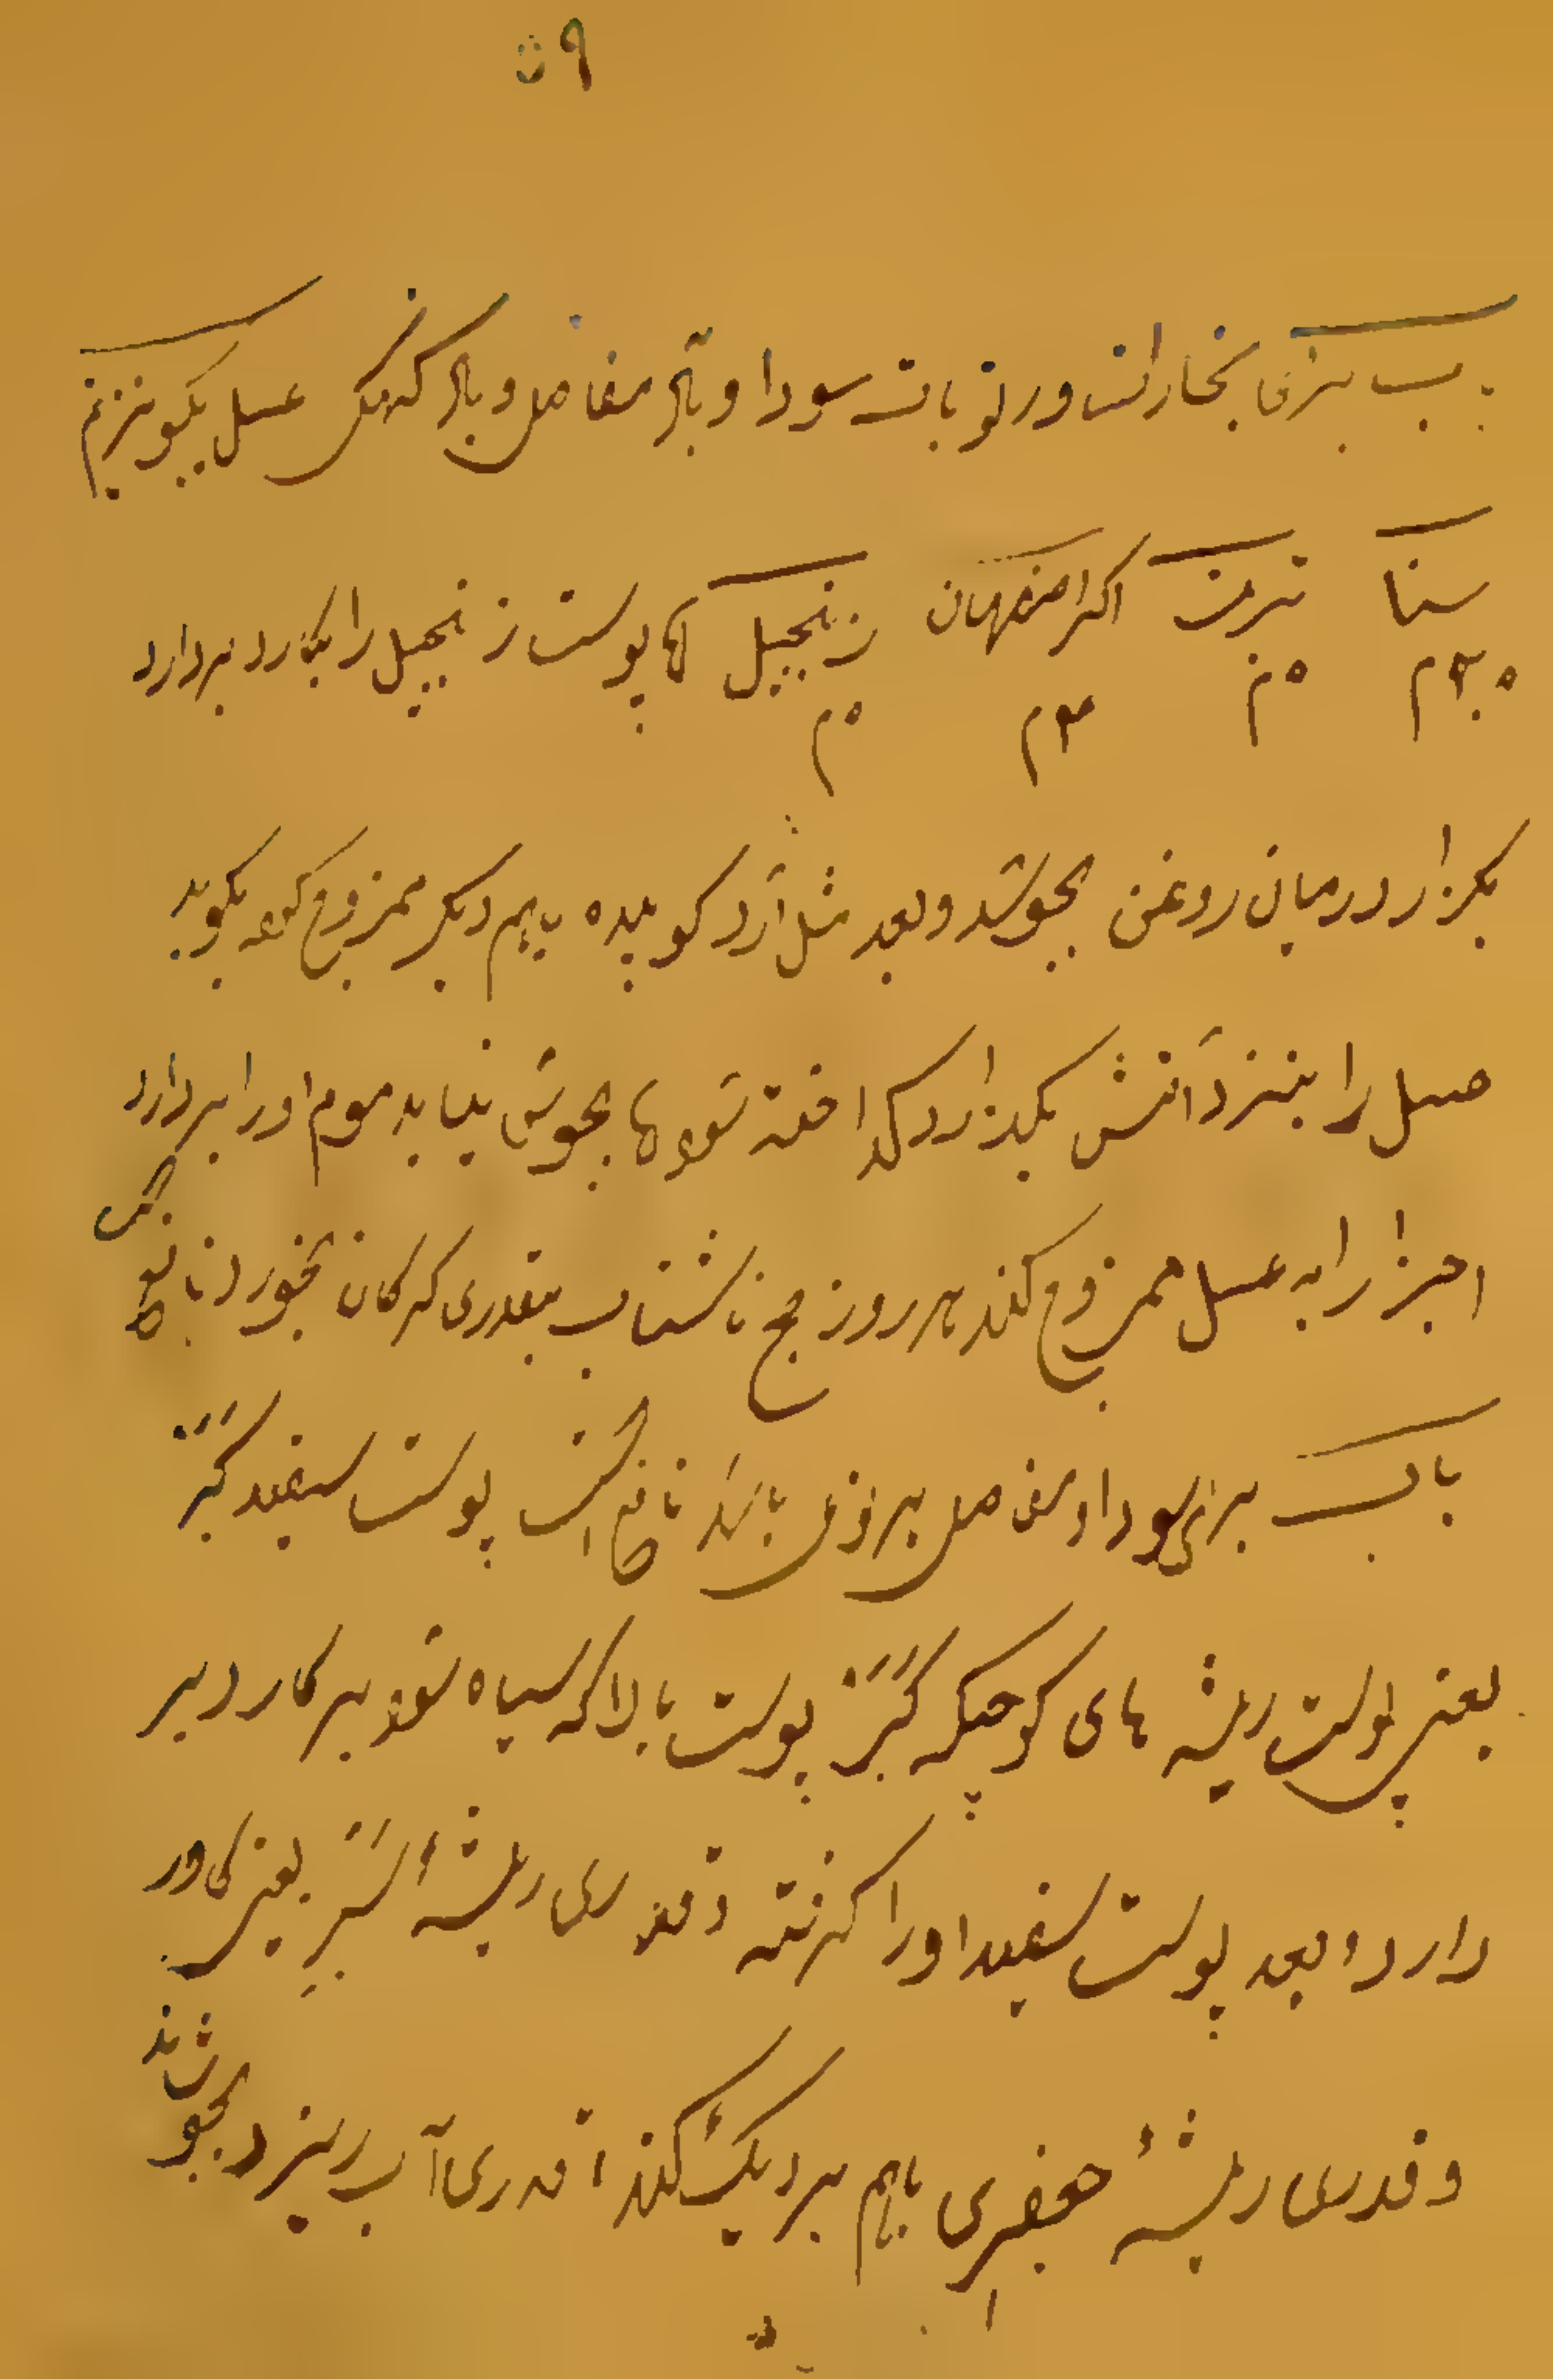 ۵۹
باب برای بخارات و رتوبات سودا و باد مفاصل و باد کهنکی عسل یکو نیم
سنا تربت اکر اصفهان زنجبیل اما پوست زنجبیل را بکارد بردارد
۵ م ۳ م ۵ م
بکزارد در میان روغن بجوشد و بعد مثل آرد کوبیده با هم دیگر ممزوج کند بکوبد
عسل را بنزد آتش بکذارد کداخته شود اما بجوش نیاید موم او را بردارد
اجزا را به عسل ممزوج کند هر روز صبح ناشتاب بقدری که کان بخورد نافع است
باب برای سودا و مفاصل بیرونی باشد نافع است پوست سفید کبر
یعنی پوست ریشه های کوچکه کبر پوست بالا که سیاه شود بر کارد بر
دارد و بعد پوست سفید او را کرفته و قدری ریشهٔ یعنی
و قدری ریشهٔ جعفری باهم بدیک کند و قدری آب بریزد بجوشاند